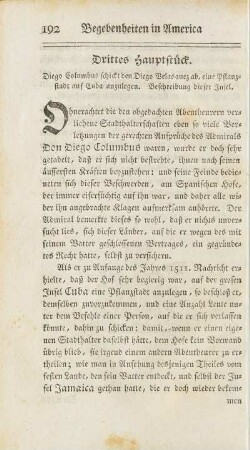 192 Begebenheiten in America
Drittes Hauptstück.
Diego Columbus schickt den Diego Velasquez ab, eine Pflanz-
stadt auf Cuba anzulegen. Beschreibung dieser Insel.
Ohnerachtet die den obgedachten Abentheurern ver-
liehene Statthalterschaften eben so viele Ver-
letzungen der gerechten Ansprüche des Admirals
Don Diego Columbus waren, wurde er doch sehr
getadelt, daß er sich nicht bestrebte, ihnen nach seinen
äussersten Kräften beyzustehen; und seine Feinde bedien-
ten sich dieser Beschwerden, am Spanischen Hofe,
der immer eifersüchtig auf ihn war, und daher alle wi-
der ihn angebrachte Klagen aufmerksam anhörte. Der
Admiral bemerkte dieses so wohl, daß er nichts unver-
sucht ließ, sich des durch die Verletzung des mit
seinem Vatter geschlossenen Vertrages, ein gegründe-
tes Recht hatte, selbst zu versichern.
Als er zu Anfange des Jahres 1511. Nachricht er-
hielte, daß der Hof sehr begierig war, auf der grossen
Insel Cuba eine Pflanzstadt anzulegen, so beschloß er,
demselben zuvorzukommen, und eine Anzahl Leute un-
ter dem Befehle einer Person, auf die er sich verlassen
könnte, dahin zu schicken; damit, wenn er einen eige-
nen Stadthalter daselbst hätte, dem Hofe kein Vorwand
übrig bliebe, sie irgend einem andern Abentheurer zu er-
theilen; wie man in Ansehung desjenigen Theiles vom
festen Lande, den sein Vatter entdeckt, und selbst der In-
sel Jamaica gethan hatte, die er doch wieder bekom-
men